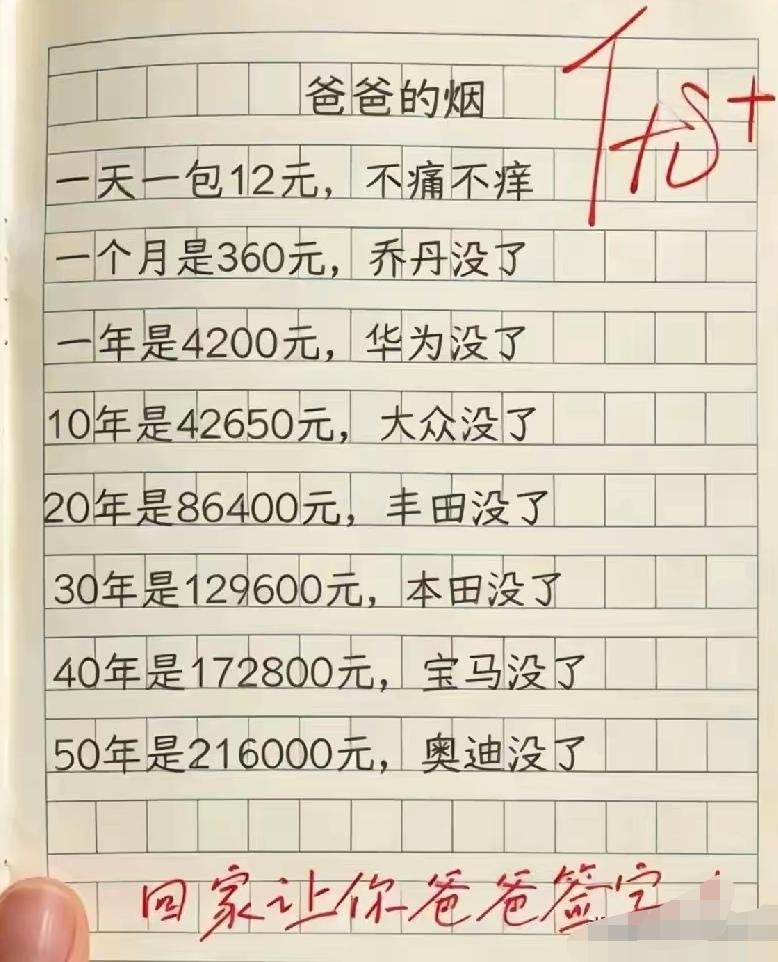 爸爸的烟
一天一包12元，不痛不痒
一个月是360元，乔丹没了
一年是4200元，华为没了
10年是42650元，大众没了
20年是86400元，丰田没了
30年是129600元，本田没了
40年是172800元，宝马没了
50年是216000元，奥迪没了
回家让你爸爸签字